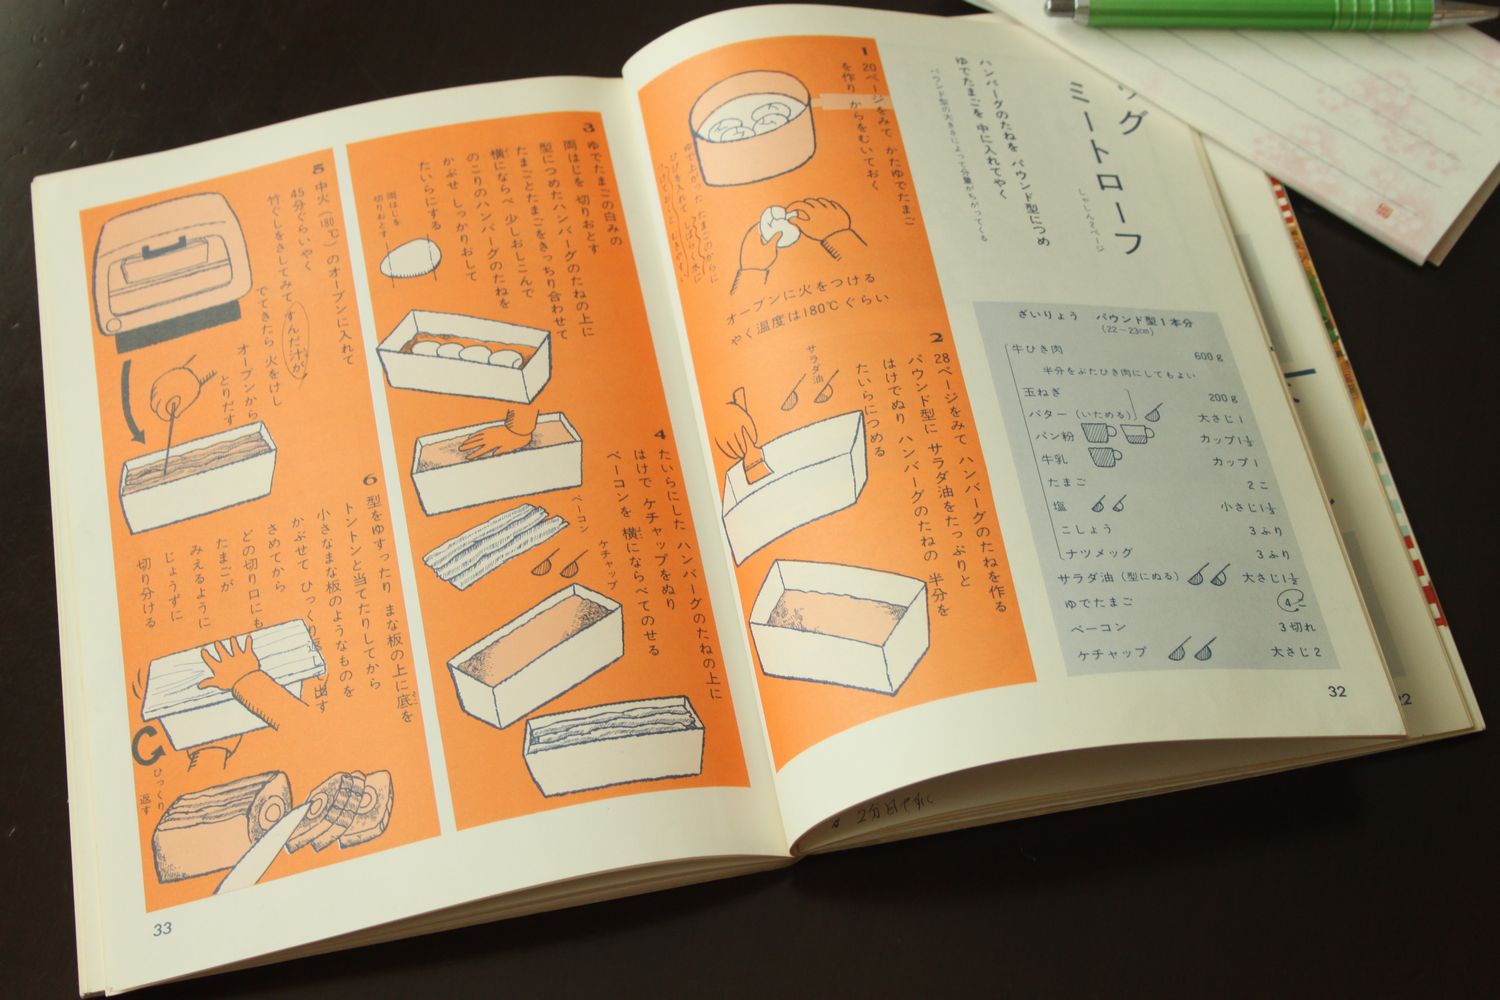 ッグ
ミートローフ
しゃしん2ページ
ハンバーグのたねを パウンド型につめ
ゆでたまごを 中に入れてやく
パウンド型の大きさによって分量がちがってくる
ざいりょう パウンド型1本分
(22〜23cm)
牛ひき肉 600g
半分をぶたひき肉にしてもよい
玉ねぎ 200g
バター(いためる) 大さじ1
パン粉 カップ1½
牛乳 カップ1
たまご 2こ
塩 小さじ1½
こしょう 3ふり
ナツメッグ 3ふり
サラダ油(型にぬる) 大さじ1½
ゆでたまご 4こ
ベーコン 3切れ
ケチャップ 大さじ2
32
1
20ページをみて かたゆでたまご
を作り からをむいておく
オーブンに火をつける
やく温度は180℃ぐらい
2
28ページをみて ハンバーグのたねを作る
パウンド型に サラダ油をたっぷりと
はけでぬり ハンバーグのたねの 半分を
たいらにつめる
サラダ油
3
ゆでたまごの白みの
両はじを 切りおとす
型につめたハンバーグのたねの上に
たまごとたまごをきっちり合わせて
横にならべ 少しおしこんで
のこりのハンバーグのたねを
かぶせ しっかりおして
たいらにする
両はじを
切りおとす
4
たいらにした ハンバーグのたねの上に
はけで ケチャップをぬり
ベーコンを 横にならべてのせる
ベーコン
ケチャップ
5
中火(180℃)のオーブンに入れて
45分ぐらいやく
竹ぐしをさしてみて すんだ汁が
でてきたら 火をけし
オーブンから
とりだす
6
型をゆすったり まな板の上に底を
トントンと当てたりしてから
小さなまな板のようなものを
かぶせて ひっくり返して出す
さめてから
どの切り口にも
たまごが
みえるように
じょうずに
切り分ける
ひっくり
返す
33